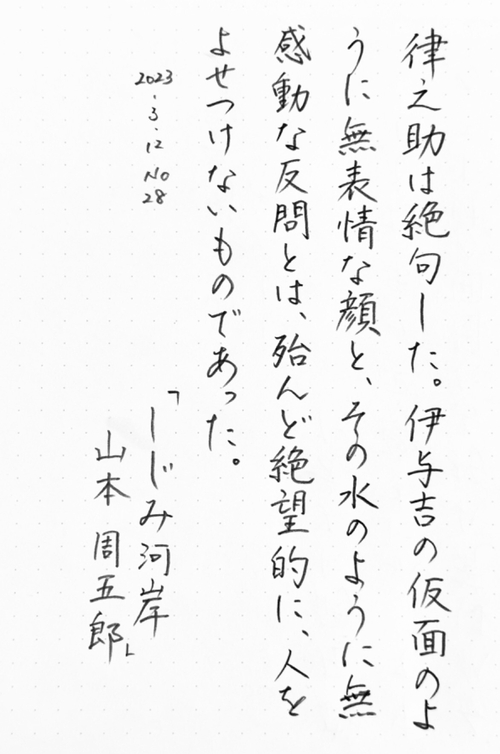 律之助は絶句した。伊与吉の仮面のよ
うに無表情な顔と、その水のように無
感動な反問とは、殆んど絶望的に、人を
よせつけないものであった。
2023.3.12 No28
「しじみ河岸
山本周五郎」